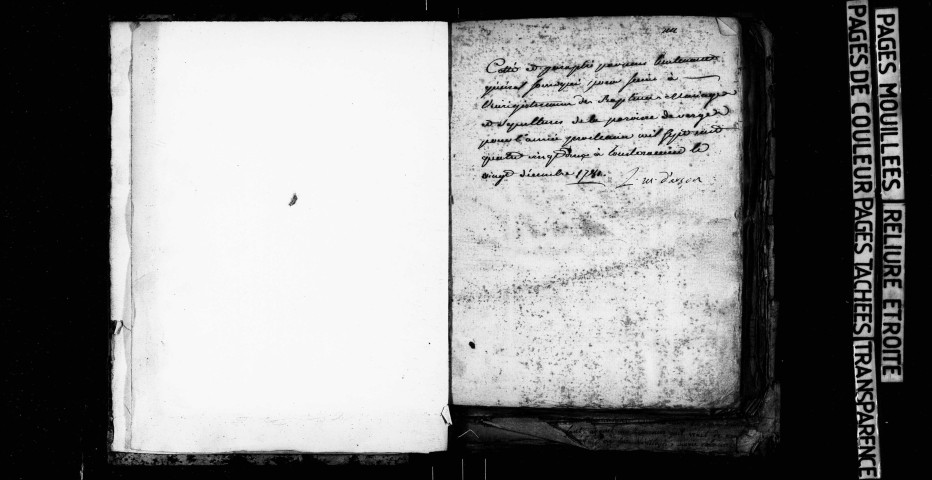 Cotté et paraphé par nous lieutenant
général pour servir à
l'enregistrement des Baptemes Mariages
et sépultures de la paroisse de verges
pour l'année prochaine mil sept cent
quatre vingt deux à
vingt décembre 1781.
PAGES MOUILLEES RELIURE ETROITE
PAGES DE COULEUR PAGES TACHEES TRANSPARENCE